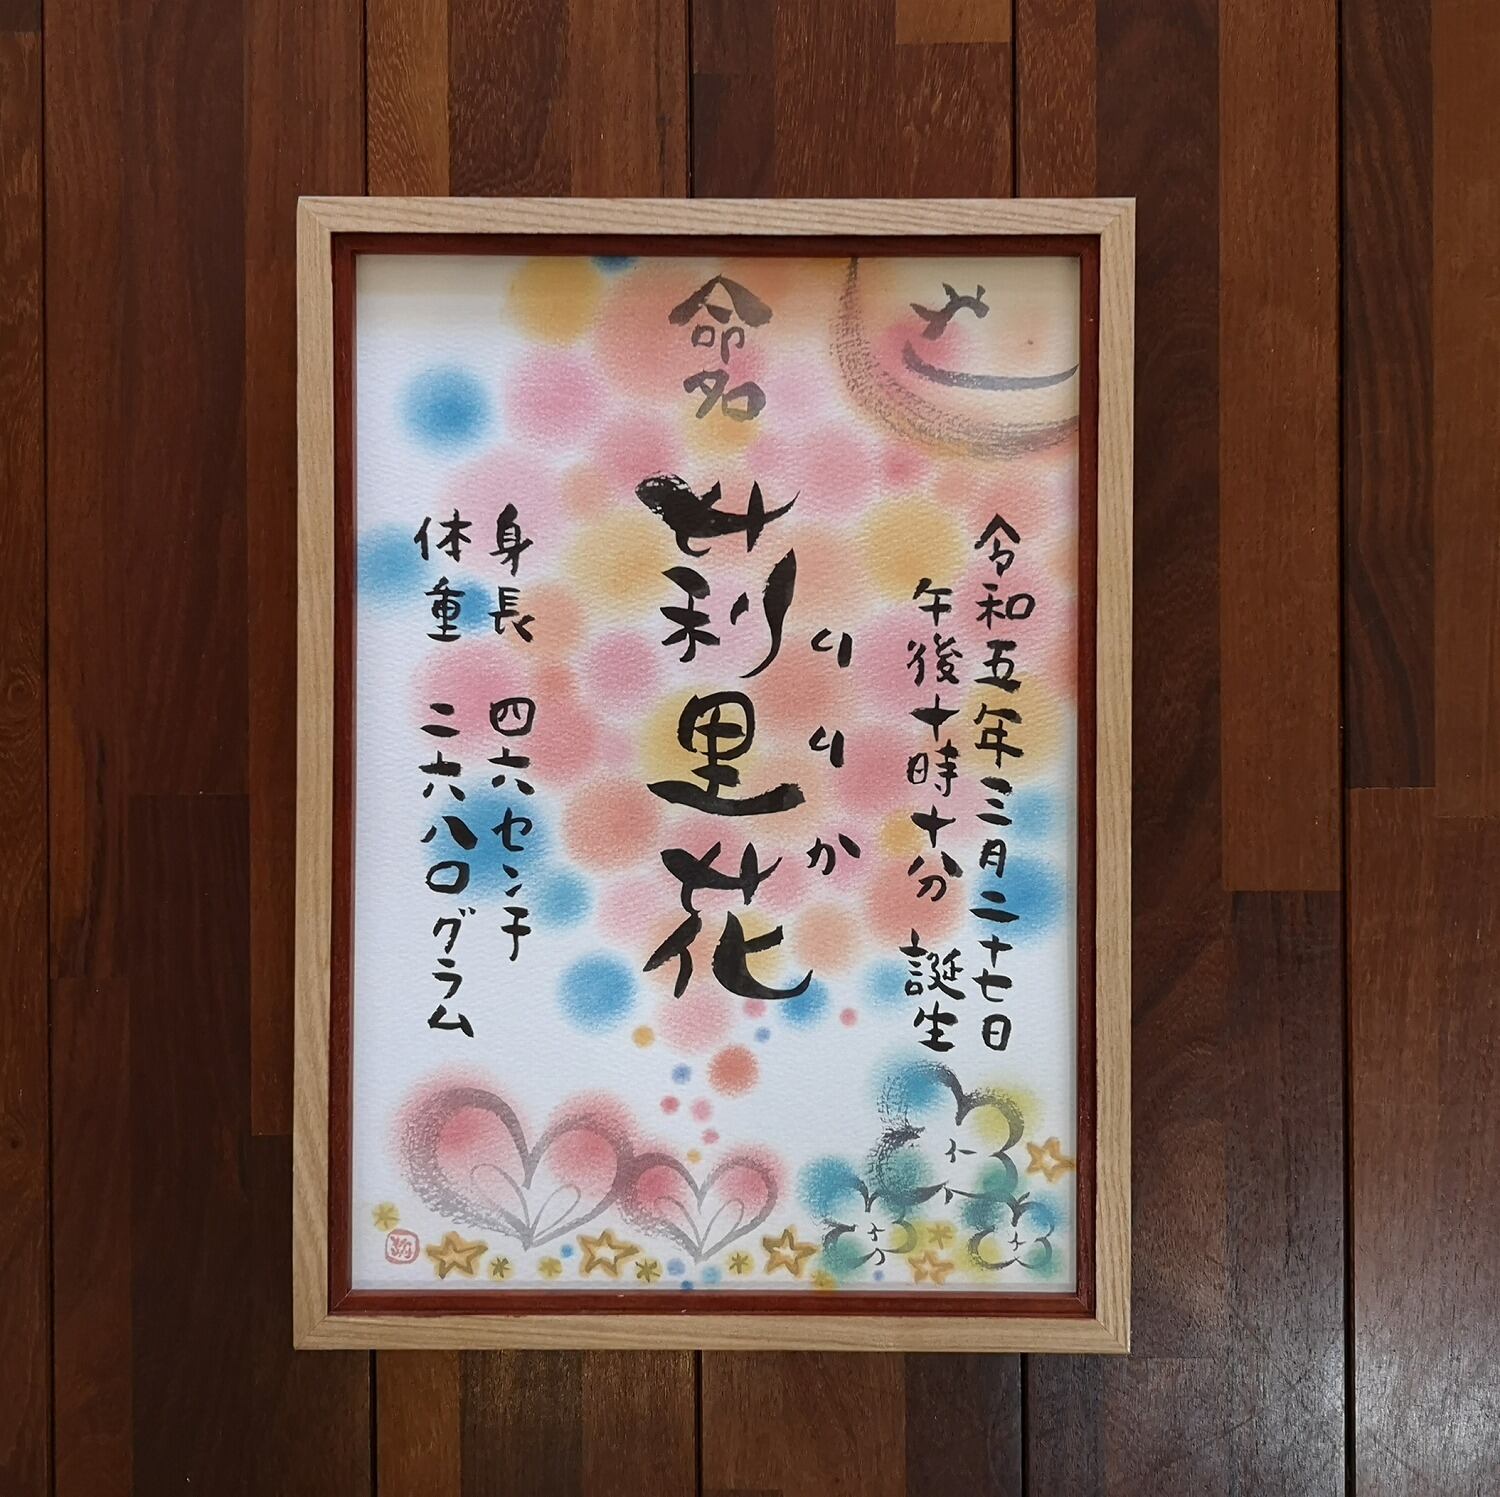 命名
令和五年三月二十七日
午後十時十分 誕生
莉里花
りりか
身長 四六センチ
体重 二六八〇グラム